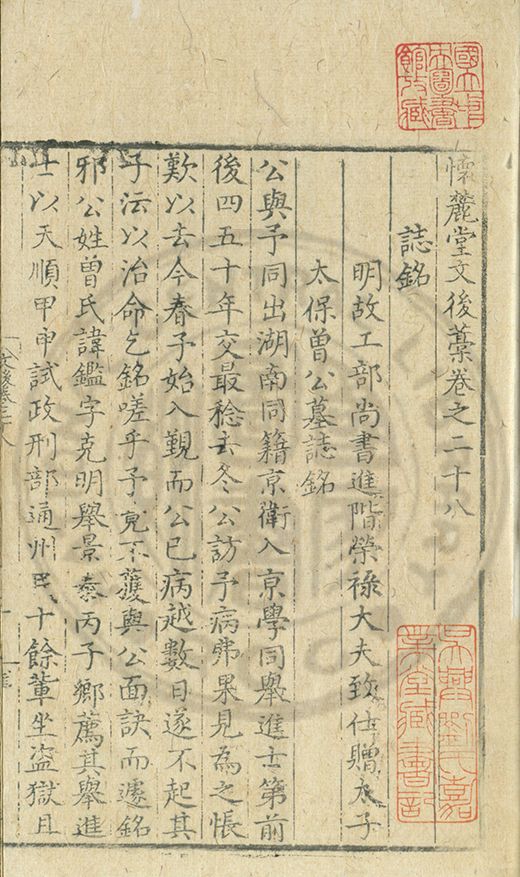 懷麓堂文後藁卷之二十八
誌銘
明故工部尚書進階榮祿大夫致仕贈太子
太保曾公墓誌銘
公與予同出湖南同籍京衛入京學同舉進士第前
後四五十年交最稔去冬公訪予病弗果見為之悵
歎以去今春予始入覲而公已病越數日遂不起其
子沄以治命乞銘嗟乎予竟不獲與公面訣而遽銘
邪公姓曾氏諱鑑字克明舉景泰丙子鄉薦其舉進
士以天順甲申試政刑部通州民十餘輩坐盜獄且
國立中央圖書館收藏
吳興劉氏嘉業堂藏書記